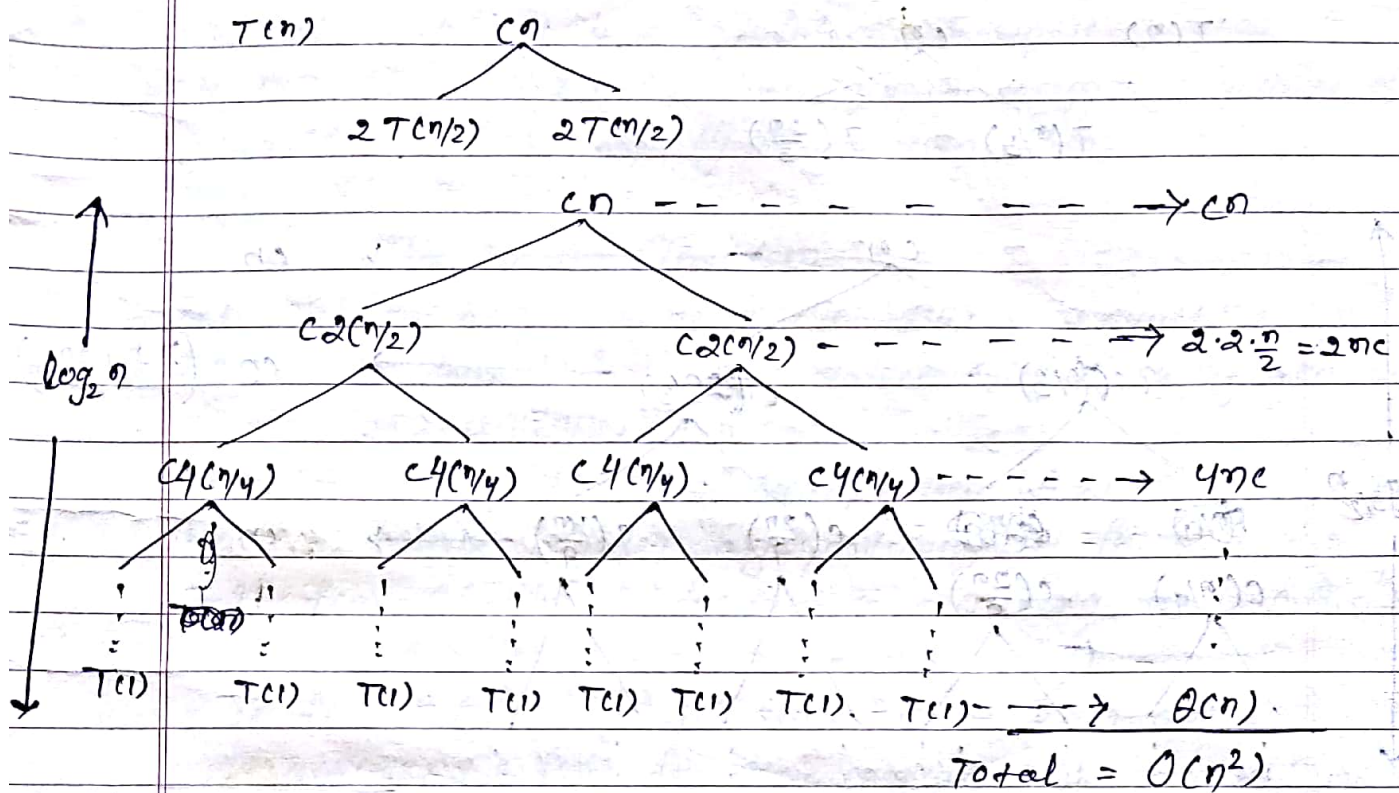 T(n) cn
2T(n/2) 2T(n/2)
cn - - - - - - - → cn
c2(n/2) c2(n/2) - - - - - - → 2·2·n/2 = 2nc
log₂n
c4(n/4) c4(n/4) c4(n/4) c4(n/4) - - - - - → 4nc
T(1) T(1) T(1) T(1) T(1) T(1) T(1). T(1) - → θ(n).
Total = O(n²)